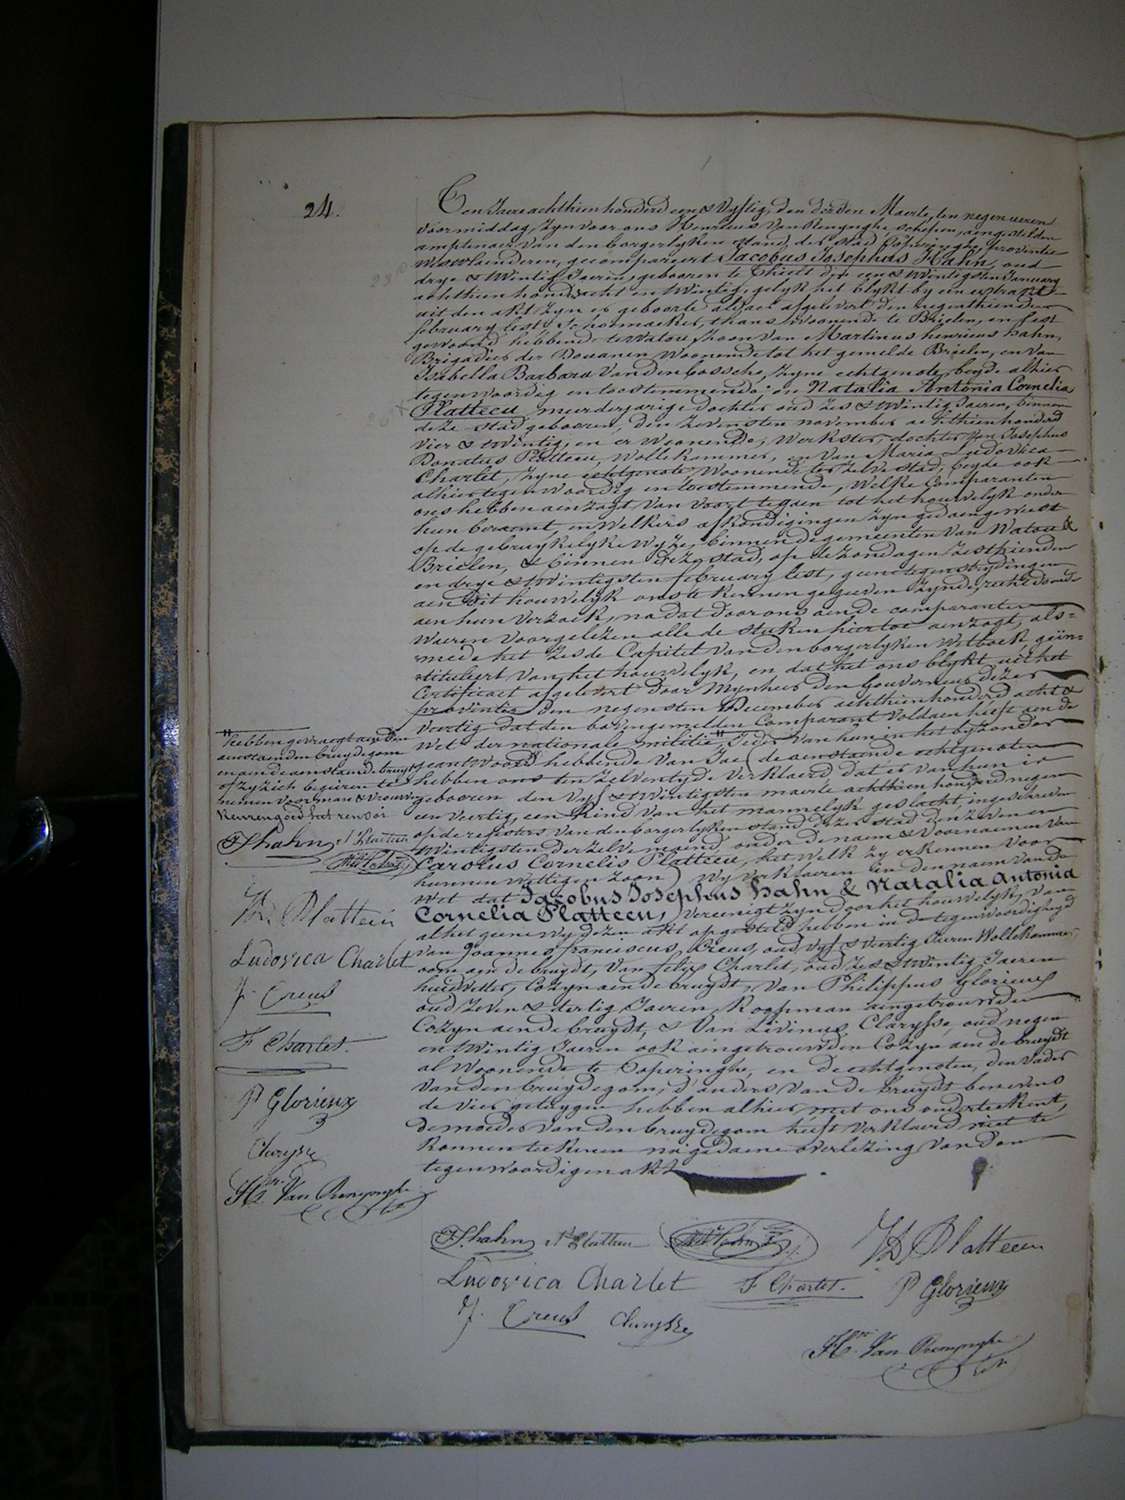 24.
Ten Jaere achthien honderd een & Vyftig, den derden Maerte, ten negen ueren
voormiddag, zyn voor ons Henricus Van Renynghe, schepen, aengestelden
amptenaer van den borgerlyken stand, der stad Poperinghe, provintie
Westvlaenderen, gecompareert Jacobus Josephus Hahn, oud
drye & twintig Jaeren, geboren te Thielt den een & twintigsten January
achthien honderd acht en twintig, gelyk het blykt by een extrakt
uit den akt zyner geboorte aldaer afgelevert den negenthienden
february lest, Schoenmaeker, thans woonende te Brielen, en lest
gewoond hebbende te Watou, zoon van Martinus henricus hahn,
Brigadier der Douanen woonende tot het gemelde Brielen, en van
Isabella Barbara Vandenbossche, zyne echtgenote, beyde alhier
tegenwoordig en toestemmende; en Natalia Antonia Cornelia
Platteeu, meerderjarige dochter oud zes & twintig Jaeren, binnen
deze stad geboren, den zevensten november achthienhonderd
vier & twintig, en er woonende, werkster, dochter van Josephus
Donatus Platteeu, Wollekammer, en van Maria Ludovica
Charlet, zyne echtgenote woonende ter zelve stad, beyde ook
alhier tegenwoordig en toestemmende, Welke Comparanten
ons hebben aenzogt van voort te gaen tot het houwelyk onder
hun beraemt, en welkers afkondigingen zyn gedaen geweest
op de gebruykelyke wyze, binnen de gemeenten van Watou &
Brielen, & binnen deze stad, op de zondagen zesthienden
en drye & twintigsten february lest, geene tegenstrydingen
aen dit houwelyk ons te kennen gegeven zynde, recht doende
aen hun verzoek, na dat door ons aen de comparanten
waeren voorgelezen alle de stukken hiertoe aenzogt, als-
mede het zesde Capitel van den borgerlyken Wetboek geïn-
stituleert van het houwelyk, en dat het ons blykt uit het
Certificaet afgelevert door Mynheer den Gouverneur dezer
provintie den negensten December achthienhonderd acht &
veertig dat den bovengemelden Comparant voldaen heeft aen de
Wet der nationale militie " Ieder van hun en het byzonder
geantwoord hebbende van Jae (de aenstaende echtgenoten
hebben ons ten zelven tyde verklaerd dat er van hun is
geboren den vyf & twintigsten maerte achthien honderd negen
en veertig, een kind van het mannelyk geslacht, ingeschreven
op de registers van den borgerlyken stand dezer stad den zeven en
twintigsten der zelve maend onder de naem & voornaemen van
Carolus Cornelis Platteeu, het welk zy erkennen voor
hunnen wettigen zoon) Wy verklaeren in den naem van de
wet dat Jacobus Josephus hahn & Natalia Antonia
Cornelia Platteeu, vereenigt zyn door het houwelyk, van
al het geene wy dezen akt opgesteld hebben in de tegenwoordigheyd
van Joannes franciscus Creus, oud vyf & veertig Jaeren Wollekammer,
oom aen de bruydt, van felix Charlet, oud zes & twintig Jaeren
huidvetter, Cozyn aen de bruydt, van Philippus Glorieux
oud zeven & dertig Jaeren, Koopman aengetrouwden
Cozyn aen de bruydt, & van Livinus Clarysse, oud negen
en twintig Jaeren ook aengetrouwden Cozyn aen de bruydt
al woonende te Poperinghe, en de echtgenoten, den vader
van den bruydegom, d'ouders van de bruydt benevens
de vier getuygen hebben alhier met ons onderteekent,
de moeder van den bruydegom heeft verklaerd niet te
konnen teekenen na gedaene overlezing van den
tegenwoordigen akt
" hebben gevraegt aen den
aenstaenden bruydegom
en aen de aenstaende bruydt
of zy zich begeeren te
nemen voor man & vrouw
Keuren goed het renvoi
J Hahn N Platteeu
JD Platteeu
Ludovica Charlet
J. Creus
F Charlet.
P Glorieux
Clarysse
Hri Van Renynghe
J Hahn N Platteeu
JD Platteeu
Ludovica Charlet F Charlet. P Glorieux
J. Creus Clarysse
Hri Van Renynghe